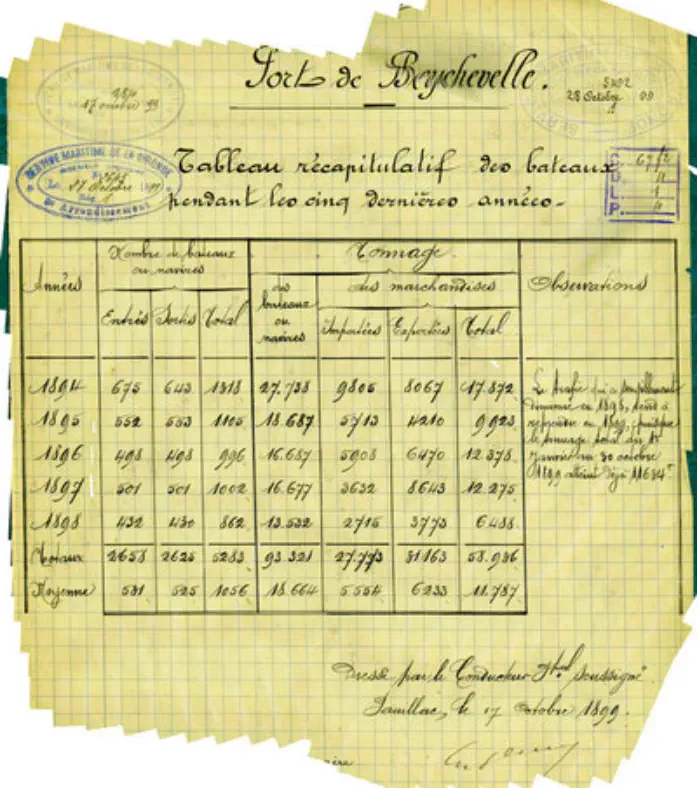 Port de Beychevelle.
17 octobre 99
28 Octobre 99
SERVICE MARITIME DE LA GIRONDE
Le 17 Octobre 1899
Arrondissement
C.
D.
L. 1
P. 4
Tableau récapitulatif des bateaux
pendant les cinq dernières années.
Années
Nombre de bateaux
ou navires
Entrés Sortis Total
Tonnage
des
bateaux
ou
navires
des marchandises
Importées Exportées Total
Observations
1894 675 643 1318 27.738 9805 8067 17.872
1895 552 553 1105 18.687 5713 4210 9923
1896 498 498 996 16.687 5908 6470 12.378
1897 501 501 1002 16.677 3632 8643 12.275
1898 432 430 862 13.532 2715 3773 6488
Totaux 2658 2625 5283 93.321 27.773 31163 58.936
Moyenne 531 525 1056 18.664 5.554 6233 11.787
Le trafic qui a
diminué en 1898, tend à
reprendre en 1899, puisque
le tonnage total du 1er
janvier au 30 octobre
1899 atteint déjà 11634 t
Dressé par le Conducteur soussigné
Pauillac, le 17 octobre 1899.